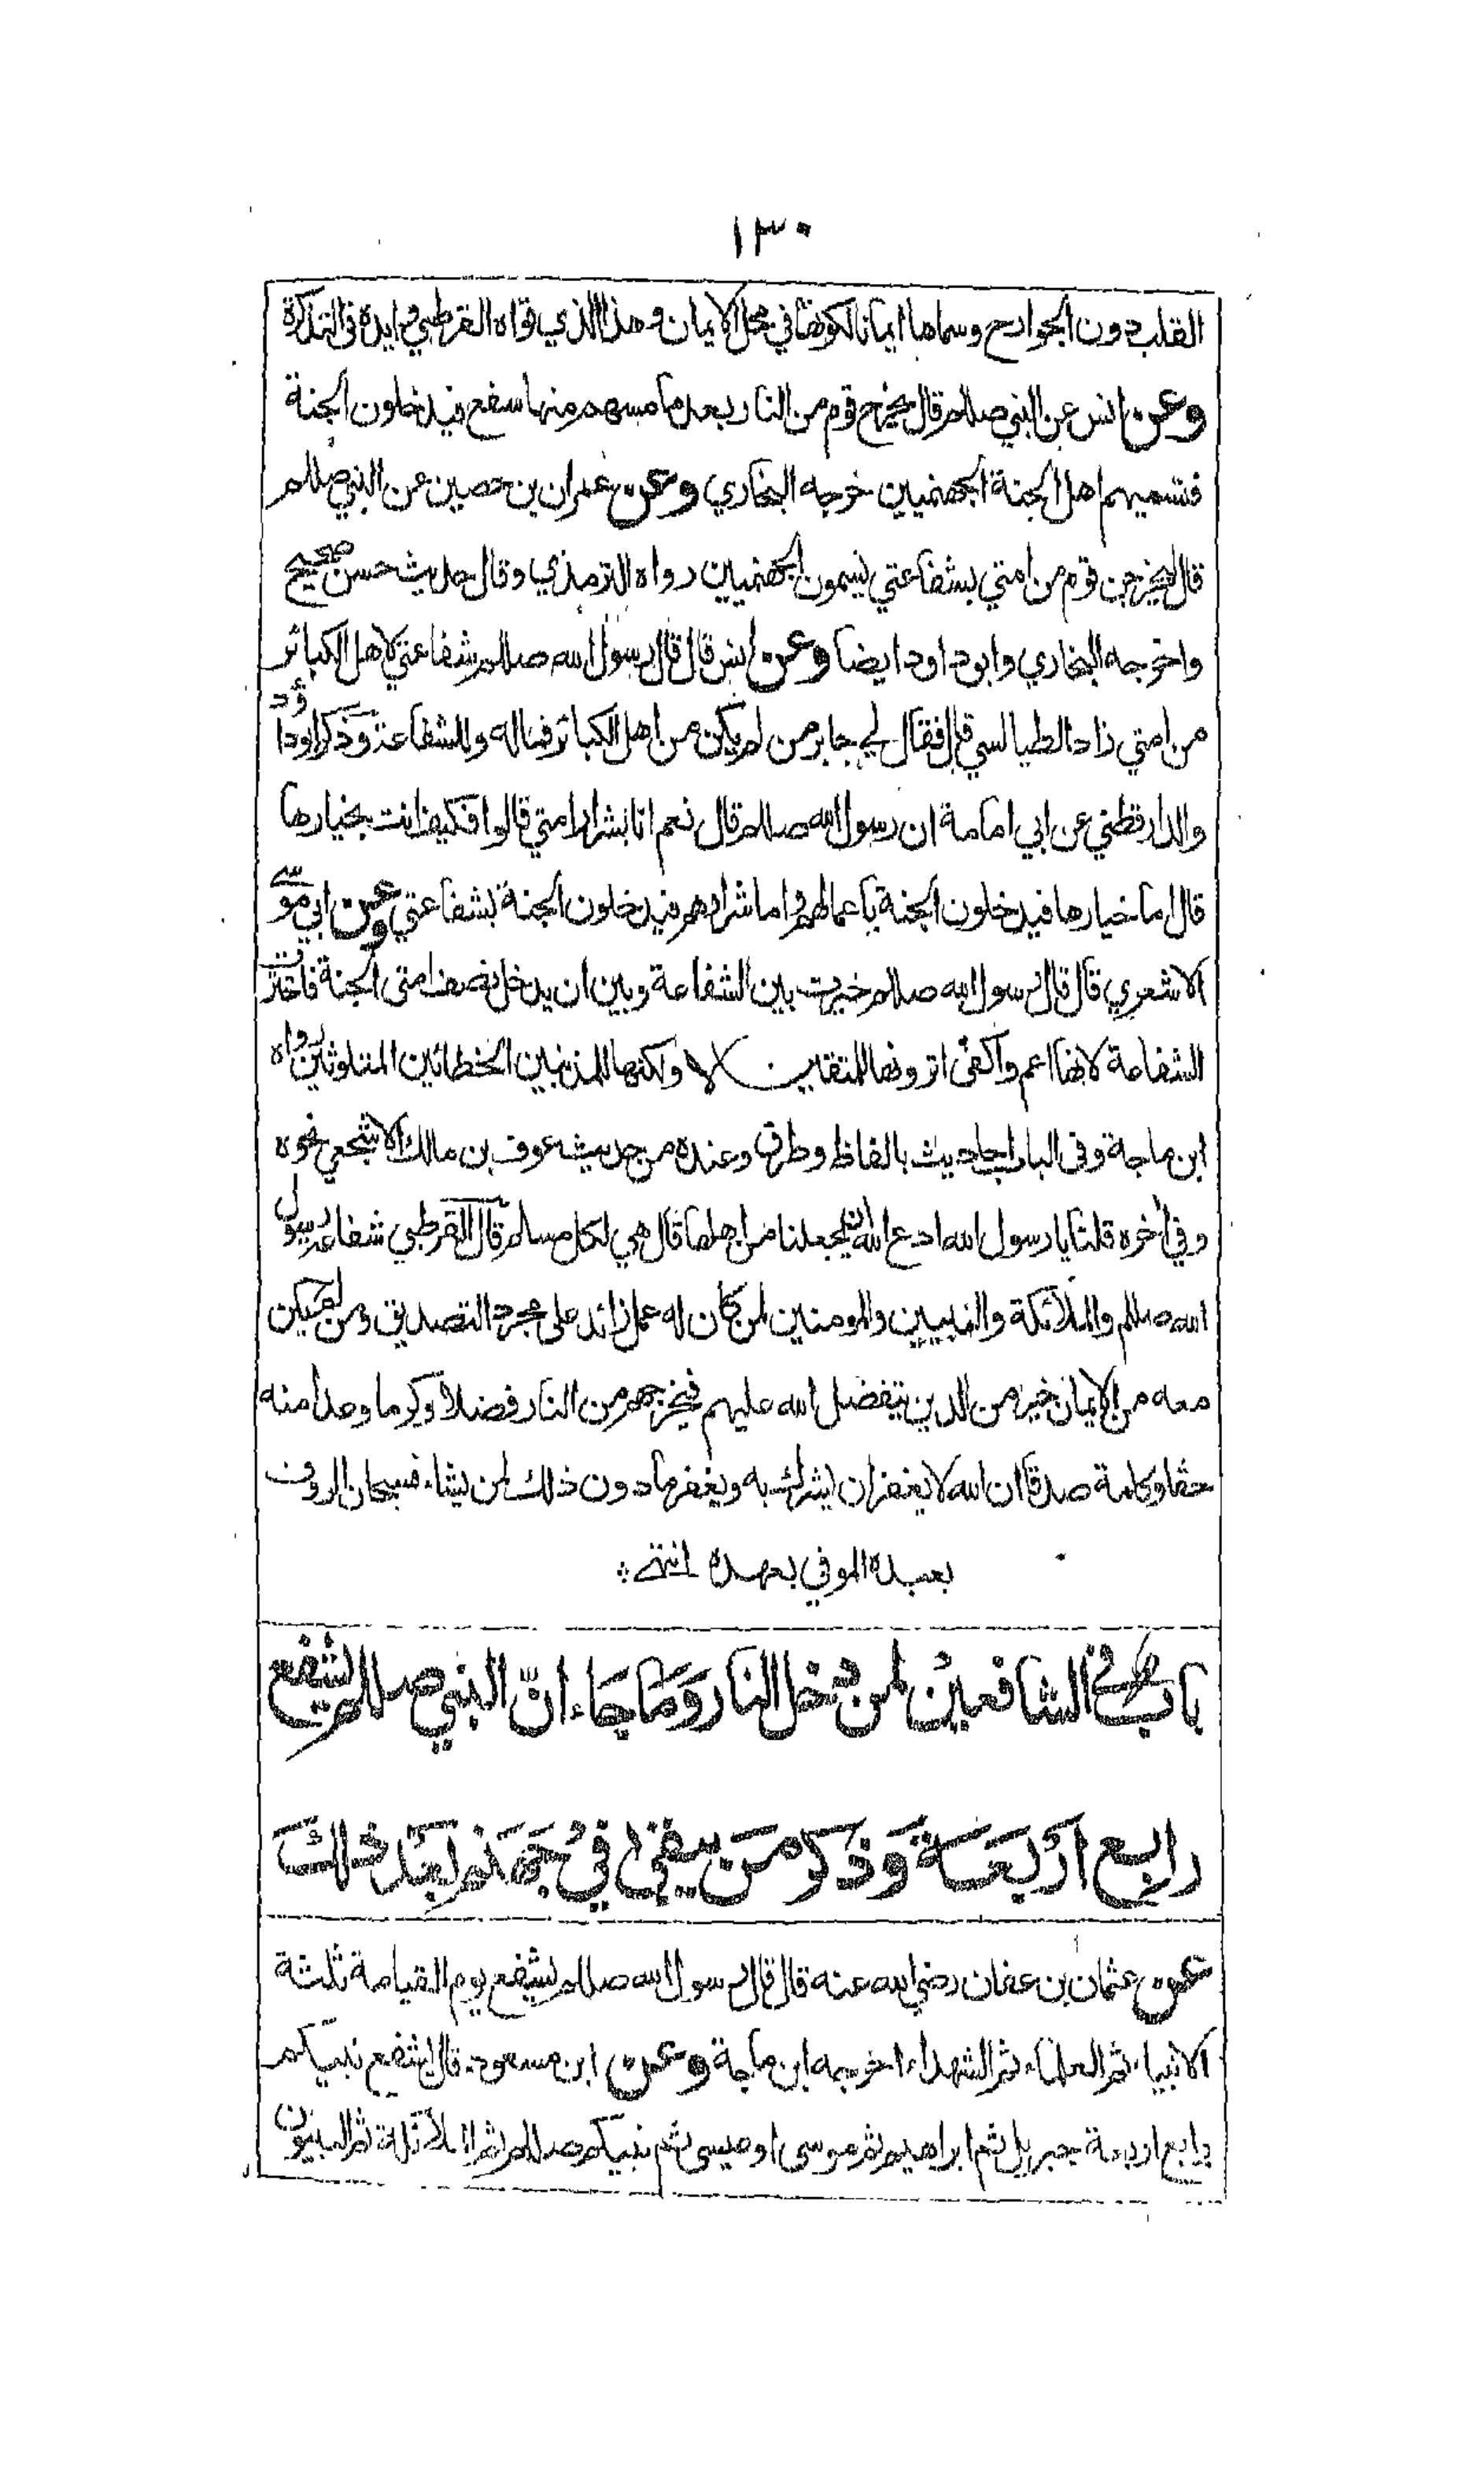 ١٣٠
القلب دون الجوارح وسماها ايمانا لكونها في محل الايمان وهذا الذي قواه القرطبي وايده في التذكرة
وعن انس عن النبي صللم قال يخرج قوم من النار بعد ما مسهم منها سفع فيدخلون الجنة
فتسميهم اهل الجنة الجهنميين خرجه البخاري وعن عمران بن حصين عن النبي صللم
قال ليخرجن قوم من امتي بشفاعتي يسمون الجهنميين رواه الترمذي وقال حديث حسن صحيح
واخرجه البخاري وابو داود ايضا وعن انس قال قال رسول الله صللم شفاعتي لاهل الكبائر
من امتي زاد الطيالسي قال فقال لي جابر من لم يكن من اهل الكبائر فما له وللشفاعة وذكر ابو داؤد
والدارقطني عن ابي امامة ان رسول الله صللم قال نعم انا بشرار امتي قالوا فكيف انت بخيارها
قال اما خيارها فيدخلون الجنة باعمالهم واما شرارهم فيدخلون الجنة بشفاعتي وعن ابي موسى
الاشعري قال قال رسول الله صللم خيرت بين الشفاعة وبين ان يدخل نصف امتي الجنة فاخترت
الشفاعة لانها اعم واكفى اترونها للمتقين لا ولكنها للمذنبين الخطائين المتلوثين رواه
ابن ماجة وفي الباب احاديث بالفاظ وطرق وعنده من حديث عوف بن مالك الاشجعي نحوه
وفي اخره قلنا يا رسول الله ادع الله ان يجعلنا من اهلها قال هي لكل مسلم قال القرطبي شفاعة رسول
الله صللم والملائكة والنبيين والمومنين لمن كان له عمل زائد على مجرد التصديق ومن لم يكن
معه من الايمان خير من الذين يتفضل الله عليهم فيخرجهم من النار فضلا وكرما وعدا منه
حقا وكلمة صدقا ان الله لا يغفر ان يشرك به ويغفر ما دون ذلك لمن يشاء فسبحان الروف
بعبده الموفي بعهده انتهى
باب في الشافعين لمن دخل النار وما جاء ان النبي صللم يشفع
رابع اربعة وذكر من يبقى في جهنم بعد ذلك
عن عثمان بن عفان رضي الله عنه قال قال رسول الله صللم يشفع يوم القيامة ثلثة
الانبياء ثم العلماء ثم الشهداء اخرجه ابن ماجة وعن ابن مسعود قال يشفع نبيكم
رابع اربعة جبريل ثم ابراهيم ثم موسى او عيسى ثم نبيكم صللم ثم الملائكة ثم النبيون